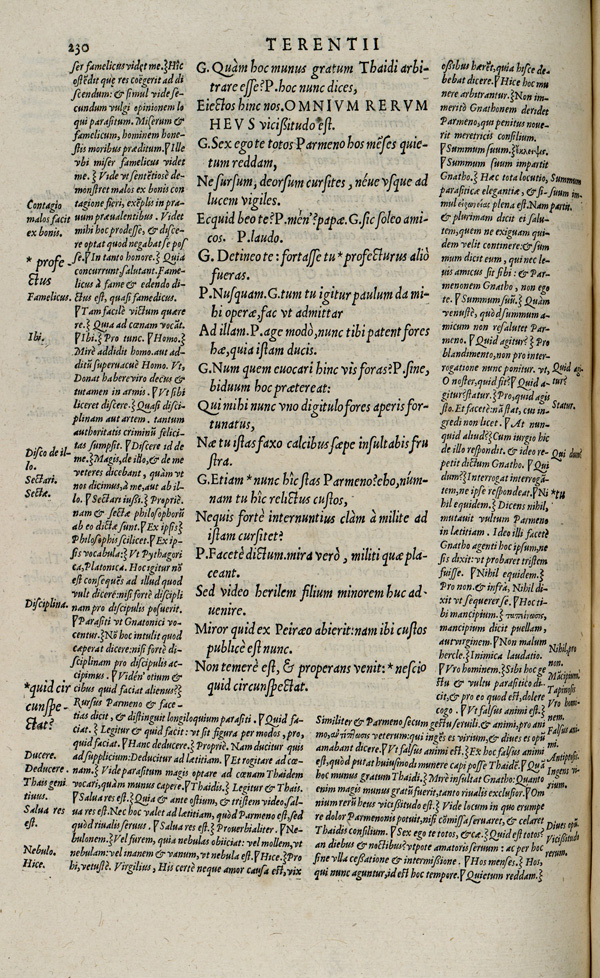 230
TERENTII
G. Quàm hoc munus gratum Thaidi arbi-
trare esse? P. hoc nunc dices,
Eiectos hinc nos. OMNIVM RERVM
HEVS vicißitudo est.
G. Sex ego te totos Parmeno hos mẽses quie-
tum reddam,
Ne sursum, deorsum cursites, néue vsque ad
lucem vigiles.
Ecquid beo te? P. mén'? papæ. G. sic soleo ami-
cos. P. laudo.
G. Detineo te: fortasse tu * profecturus aliò
fueras.
P. Nusquam. G. tum tu igitur paulum da mi-
hi operæ, fac vt admittar
Ad illam. P. age modò, nunc tibi patent fores
hæ, quia istam ducis.
G. Num quem euocari hinc vis foras? P. sine,
biduum hoc prætereat:
Qui mihi nunc vno digitulo fores aperis for-
tunatus,
Næ tu istas faxo calcibus sæpe insultabis fru
stra.
G. Etiam * nunc hîc stas Parmeno? eho, núm-
nam tu hîc relictus custos,
Nequis fortè internuntius clàm à milite ad
istam cursitet?
P. Facetè dictum. mira verò, militi quæ pla-
ceant.
Sed video herilem filium minorem huc ad-
uenire.
Miror quid ex Peiræo abierit: nam ibi custos
publicè est nunc.
Non temerè est, & properans venit: * nescio
quid circunspectat.
ser famelicus videt me.} Hîc
ostẽdit que res coëgerit ad di
scendum: & simul vide se-
cundum vulgi opinionem lo
qui parasitum. Miserum &
famelicum, hominem hone-
stis moribus præditum. Ille
vbi miser famelicus videt
me.} Vide vt sentẽtiosè de-
monstret malos ex bonis con
tagione fieri, exẽplis in pra-
uum præualentibus. Videt
mihi hoc prodesse, & disce-
re optat quod negabat se pos
se. In tanto honore.} Quia
concurrunt, salutant. Fame-
licus à fame & edendo di-
ctus est, quasi famedicus.
Tam facilè victum quære
re.} Quia ad cœnam vocãt.
Ibi.} Pro tunc. Homo.}
Mirè addidit homo. aut ad-
ditũ superuacuè Homo. Vt,
Donat habere viro decus &
tutamen in armis. Vt sibi
liceret discere.} Quasi disci-
plinam aut artem. tantum
authoritatis criminũ felici-
tas sumpsit. Discere id de
me.} Magis, de illo, & de me
veteres dicebant, quàm vt
nos dicimus, à me, aut ab il-
lo. Sectari iußi.} Propriè.
nam & sectæ philosophorũ
ab eo dictæ sunt. Ex ipsis}
Philosophis scilicet. Ex ip-
sis vocabula:} Vt Pythagori
ca, Platonica. Hoc igitur nõ
est consequẽs ad illud quod
vult dicere: nisi fortè discipli
nam pro discipulis posuerit.
Parasiti vt Gnatonici vo-
centur.} Nõ hoc intulit quod
cœperat dicere: nisi fortè di-
sciplinam pro discipulis ac-
cipimus. Vidén' otium &
cibus quid faciat alienus?}
Rursus Parmeno & face-
tias dicit, & distinguit longiloquium parasiti. Quid fa-
ciat.} Legitur & quid facit: vt sit figura per modos, pro,
quid faciat. Hanc deducere.} Propriè. Nam ducitur quis
ad supplicium: Deducitur ad lætitiam. Et rogitare ad cœ-
nam.} Vide parasitum magis optare ad cœnam Thaidem
vocari, quàm munus capere. Thaidis.} Legitur & Thais.
Salua res est.} Quia & ante ostium, & tristem video, sal-
ua res est. Nec hoc valet ad lætitiam, quòd Parmeno est, sed
quòd riualis seruus. Salua res est.} Prouerbialiter. Ne-
bulonem.} Vel furem, quia nebulas obiiciat: vel mollem, vt
nebulam: vel inanem & vanum, vt nebula est. Hice.} Pro
hi, vetustè. Virgilius, His certè neque amor causa est, vix
Contagio
malos facit
ex bonis.
* profe
ctus
Famelicus.
Ibi.
Disco de il-
lo.
Sectari.
Sectæ.
Disciplina.
*quid cir
cunspe-
ctat?
Ducere.
Deducere.
Thais geni
tiuus.
Salua res
est.
Nebulo.
Hice.
oßibus hærẽt, quia hisce de-
bebat dicere. Hice hoc mu
nere arbitrantur.} Non im-
meritò Gnathonem deridet
Parmeno, qui penitus noue-
rit meretricis consilium.
Summum suum.}
Summum suum impartit
Gnatho.} Hæc tota locutio,
parasiticæ elegantiæ, & si-
mul plena est. Nam
& plurimam dicit ei salu-
tem, quem ne exiguam qui-
dem velit continere: & sum
mum dicit eum, qui nec le-
uis amicus sit sibi: & Par-
menonem Gnatho, non ego
te. Summum suũ.} Quàm
venustè, quòd summum a-
micum non resalutet Par-
meno. Quid agitur?} Pro
blandimento, non pro inter-
rogatione nunc ponitur. vt,
O noster, quid fit? Quid a-
gitur? statur.} Pro, quid agis
sto. Et facetè: nã stat, cui in-
gredi non licet. At nun-
quid aliud?} Cum iurgio hic
de illo respondit. & ideo re-
petit dictum Gnatho. Qui
dum?} Interrogat interrogã-
tem, ne ipse respondeat. Ni
hil equidem.} Dicens nihil,
mutauit vultum Parmeno
in lætitiam. Ideo illi facetè
Gnatho agenti hoc ipsum, ne
sis dixit: vt probaret tristem
fuisse. Nihil equidem.}
Pro non. & infrà, Nihil di-
xit vt sequererse. Hoc ti-
bi mancipium.}
mancipium dicit puellam,
aut virginem. Non malum
hercle.} Inimica laudatio.
Vro hominem.} Sibi hoc ge
stu & vultu parasitico di-
cit, & pro eo quod est, dolere
cogo. Vt falsus animi est.}
Similiter & Parmeno secum gestu seruili, & animi, pro ani
mo, veterum: qui ingẽs es virium, & diues es opũ
amabant dicere. Vt falsus animi est.} Ex hoc falsus animi
est, quòd putat huiusmodi munere capi posse Thaidẽ. Quã
hoc munus gratum Thaidi.} Mirè insultat Gnatho: Quanto
enim magis munus gratũ fuerit, tanto riualis exclusior. Om
nium rerũ heus vicißitudo est.} Vide locum in quo erumpe
re dolor Parmenonis potuit, nisi cõmissa seruaret, & celaret
Thaidis consilium. Sex ego te totos, &ca.} Quid est totos?
an diebus & noctibus? vtpote amatoris seruum: ac per hoc
sine vlla ceßatione & intermißione. Hos menses.} Hos,
qui nunc aguntur, id est hoc tempore. Quietum reddam.}
Summum
suum im-
partit.
Quid agi-
tur?
Statur.
Qui dum?
*tu
Nihil, pro
non.
Mãcipiũ.
Tapinosis
Vro homi-
nem.
Falsus ani-
mi.
Antiptosis.
Ingens vi-
rium.
Diues opũ.
Vicißitudo
rerum.